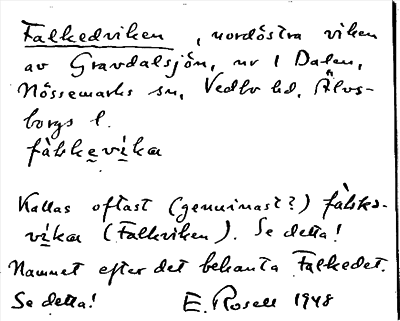 Falkedviken, nordöstra viken
av Gravdalsjön, nr 1 Dalen,
Nössemarks sn, Vedbo hd, Älvs-
borgs l.
fàlkevíka
Kallas oftast (genuinast?) fàlke-
víka (Falkviken). Se detta!
Namnet efter det bekanta Falkedet.
Se detta! E. Rosell 1948